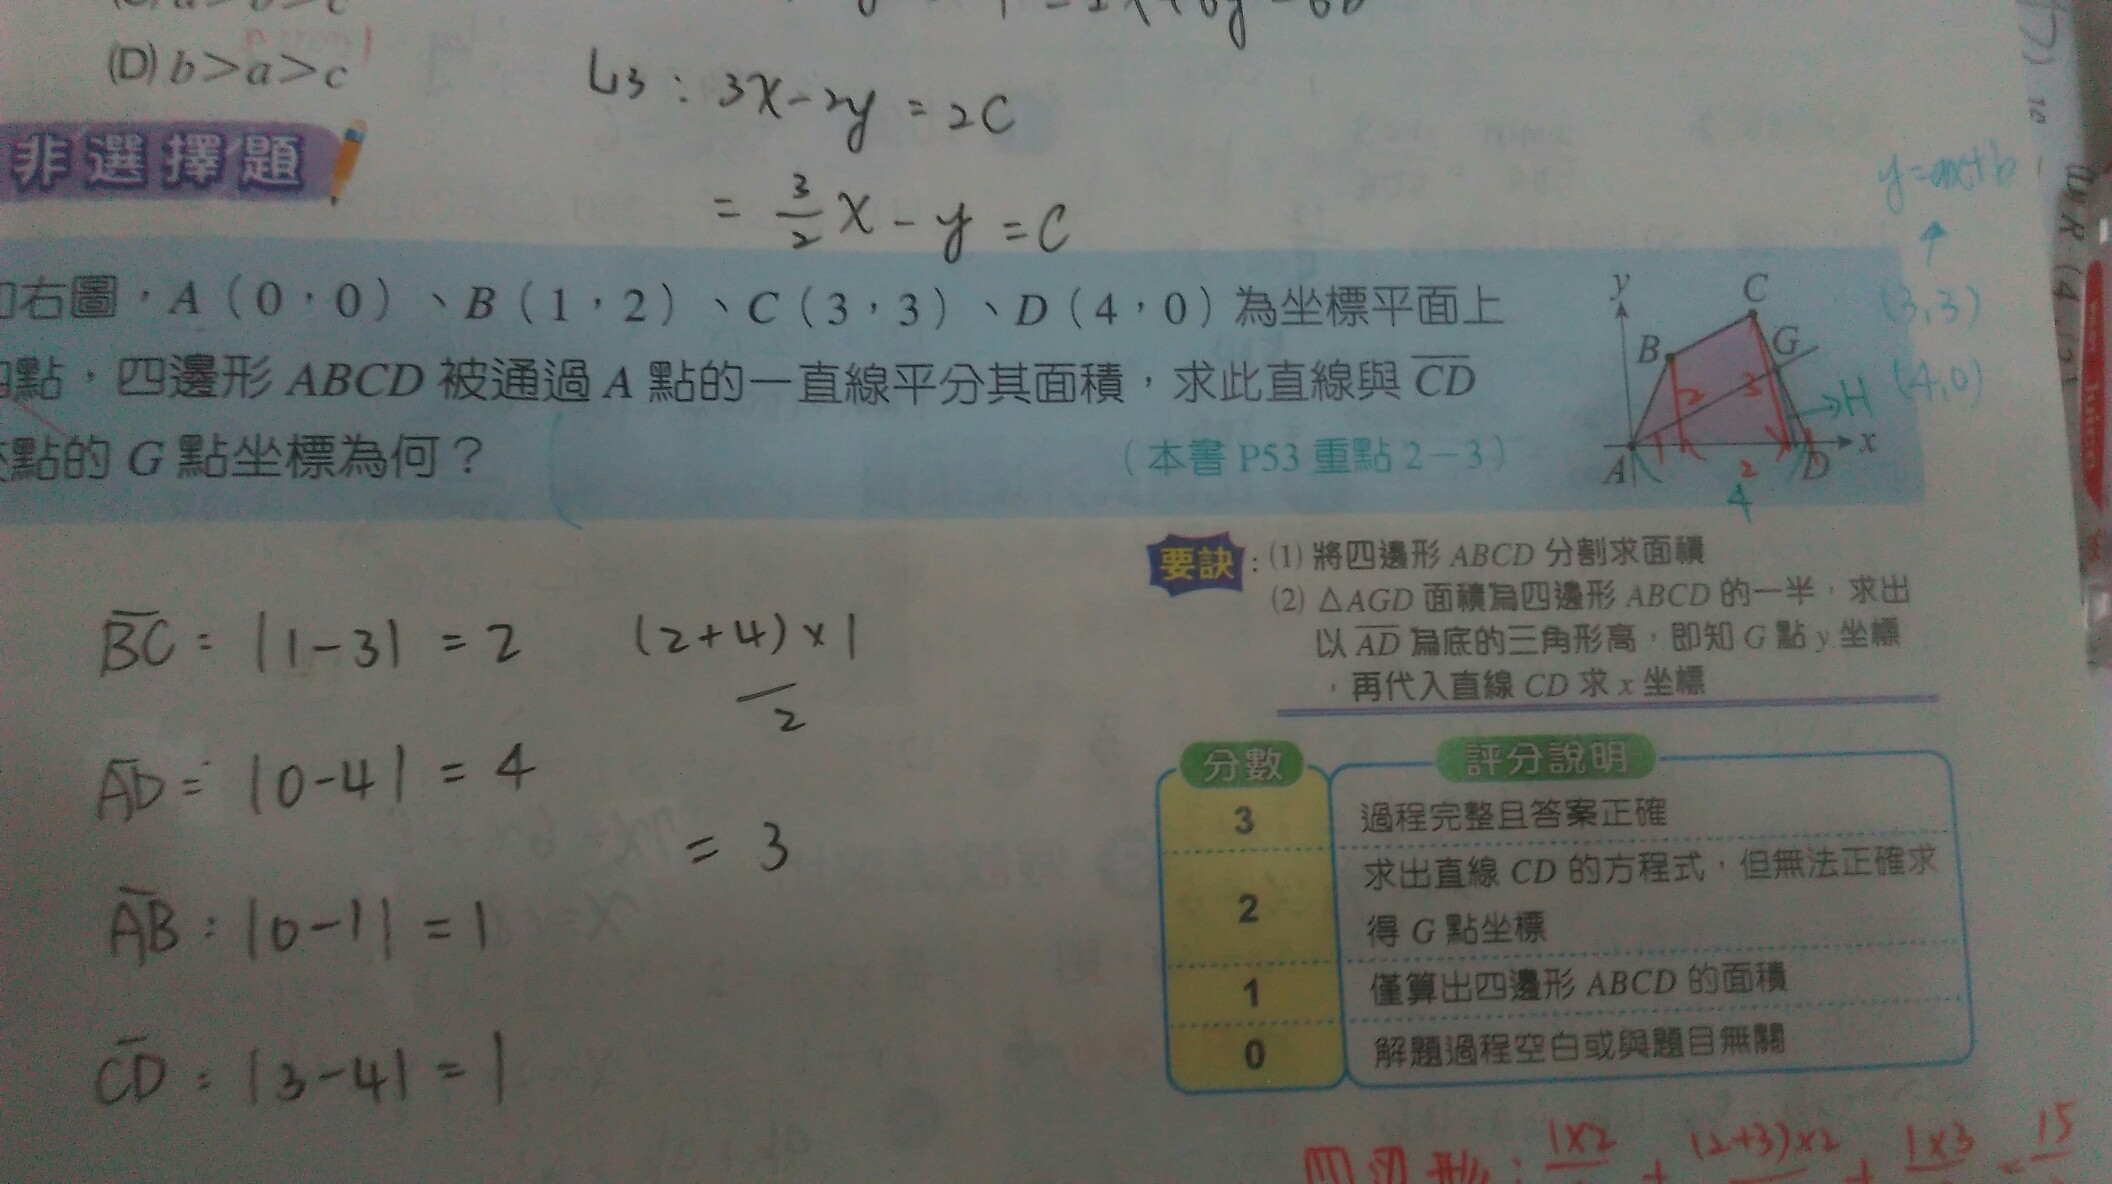 (D) b>a>c
L3 : 3x-2y = 2C
= 3/2 x - y = C
非選擇題
右圖，A（0，0）、B（1，2）、C（3，3）、D（4，0）為坐標平面上
點，四邊形 ABCD 被通過 A 點的一直線平分其面積，求此直線與 CD
點的 G 點坐標為何？
（本書 P53 重點 2－3）
y
C
B
G
2
3
H
1
A
2
D
x
4
y=ax+b
(3,3)
(4,0)
要訣：(1) 將四邊形 ABCD 分割求面積
(2) △AGD 面積為四邊形 ABCD 的一半，求出
以 AD 為底的三角形高，即知 G 點 y 坐標
，再代入直線 CD 求 x 坐標
BC : |1-3| = 2
(2+4)×1
2
AD = |0-4| = 4
= 3
AB : |0-1| = 1
CD : |3-4| = 1
分數 評分說明
3 過程完整且答案正確
2 求出直線 CD 的方程式，但無法正確求
得 G 點坐標
1 僅算出四邊形 ABCD 的面積
0 解題過程空白或與題目無關
1×2 + (2+3)×2 + 1×3 = 15